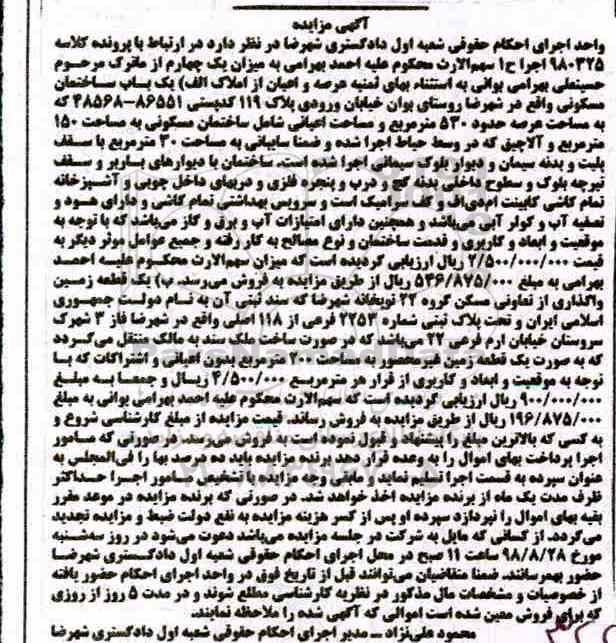 آگهی مزایده
واحد اجرای احکام حقوقی شعبه اول دادگستری شهرضا در نظر دارد در ارتباط با پرونده کلاسه
۹۸۰۳۲۵ اجرا ح۱ سهم‌الارث محکوم علیه احمد بهرامی به میزان یک چهارم از ماترک مرحوم
حسینعلی بهرامی بوانی به استثناء بهای ثمنیه عرصه و اعیان از املاک الف) یک باب ساختمان
مسکونی واقع در شهرضا روستای بوان خیابان ورودی پلاک ۱۱۹ کدپستی ۸۶۵۵۱-۴۸۵۶۸ که
به مساحت عرصه حدود ۵۳۰ مترمربع و مساحت اعیانی شامل ساختمان مسکونی به مساحت ۱۵۰
مترمربع و آلاچیق که در وسط حیاط اجرا شده و ضمنا سایبانی به مساحت ۳۰ مترمربع با سقف
پلیت و بدنه سیمان و دیوار بلوک سیمانی اجرا شده است. ساختمان با دیوارهای باربر و سقف
تیرچه بلوک و سطوح داخلی بدنه گچ و درب و پنجره فلزی و دربهای داخل چوبی و آشپزخانه
تمام کاشی کابینت ام‌دی‌اف و کف سرامیک است و سرویس بهداشتی تمام کاشی و دارای هود و
تصفیه آب و کولر آبی می‌باشد و همچنین دارای امتیازات آب و برق و گاز می‌باشد که با توجه به
موقعیت و ابعاد و کاربری و قدمت ساختمان و نوع مصالح به کار رفته و جمیع عوامل موثر دیگر به
قیمت ۲/۵۰۰/۰۰۰/۰۰۰ ریال ارزیابی گردیده است که میزان سهم‌الارث محکوم علیه احمد
بهرامی به مبلغ ۵۴۶/۸۷۵/۰۰۰ ریال از طریق مزایده به فروش می‌رسد. ب) یک قطعه زمین
واگذاری از تعاونی مسکن گروه ۲۲ توپخانه شهرضا که سند ثبتی آن به نام دولت جمهوری
اسلامی ایران و تحت پلاک ثبتی شماره ۲۲۵۳ فرعی از ۱۱۸ اصلی واقع در شهرضا فاز ۳ شهرک
سروستان خیابان ارم فرعی ۲۲ می‌باشد که در صورت ساخت ملک سند به مالک منتقل می‌گردد
که به صورت یک قطعه زمین غیرمحصور به مساحت ۲۰۰ مترمربع بدون اعیانی و اشتراکات که با
توجه به موقعیت و ابعاد و کاربری از قرار هر مترمربع ۴/۵۰۰/۰۰۰ ریال و جمعا به مبلغ
۹۰۰/۰۰۰/۰۰۰ ریال ارزیابی گردیده است که سهم‌الارث محکوم علیه احمد بهرامی بوانی به مبلغ
۱۹۶/۸۷۵/۰۰۰ ریال از طریق مزایده به فروش رساند. قیمت مزایده از مبلغ کارشناسی شروع و
به کسی که بالاترین مبلغ را پیشنهاد و قبول نموده است به فروش می‌رسد. در صورتی که مامور
اجرا پرداخت بهای اموال را به وعده قرار دهد برنده مزایده باید ده درصد بها را فی‌المجلس به
عنوان سپرده به قسمت اجرا تسلیم نماید و مابقی وجه مزایده با تشخیص مامور اجرا حداکثر
ظرف مدت یک ماه از برنده مزایده اخذ خواهد شد. در صورتی که برنده مزایده در موعد مقرر
بقیه بهای اموال را نپردازد سپرده او پس از کسر هزینه مزایده به نفع دولت ضبط و مزایده تجدید
می‌گردد. از کسانی که مایل به شرکت در جلسه مزایده می‌باشد دعوت می‌شود در روز سه‌شنبه
مورخ ۹۸/۸/۲۸ ساعت ۱۱ صبح در محل اجرای احکام حقوقی شعبه اول دادگستری شهرضا
حضور بهمرسانند. ضمنا متقاضیان می‌توانند قبل از تاریخ فوق در واحد اجرای احکام حضور یافته
از خصوصیات و مشخصات مال مذکور در نظریه کارشناسی مطلع شوند و در مدت ۵ روز از روزی
که برای فروش معین شده است اموالی که آگهی شده را ملاحظه نمایند.
محمود علی‌نژاد - مدیر اجرای احکام حقوقی شعبه اول دادگستری شهرضا